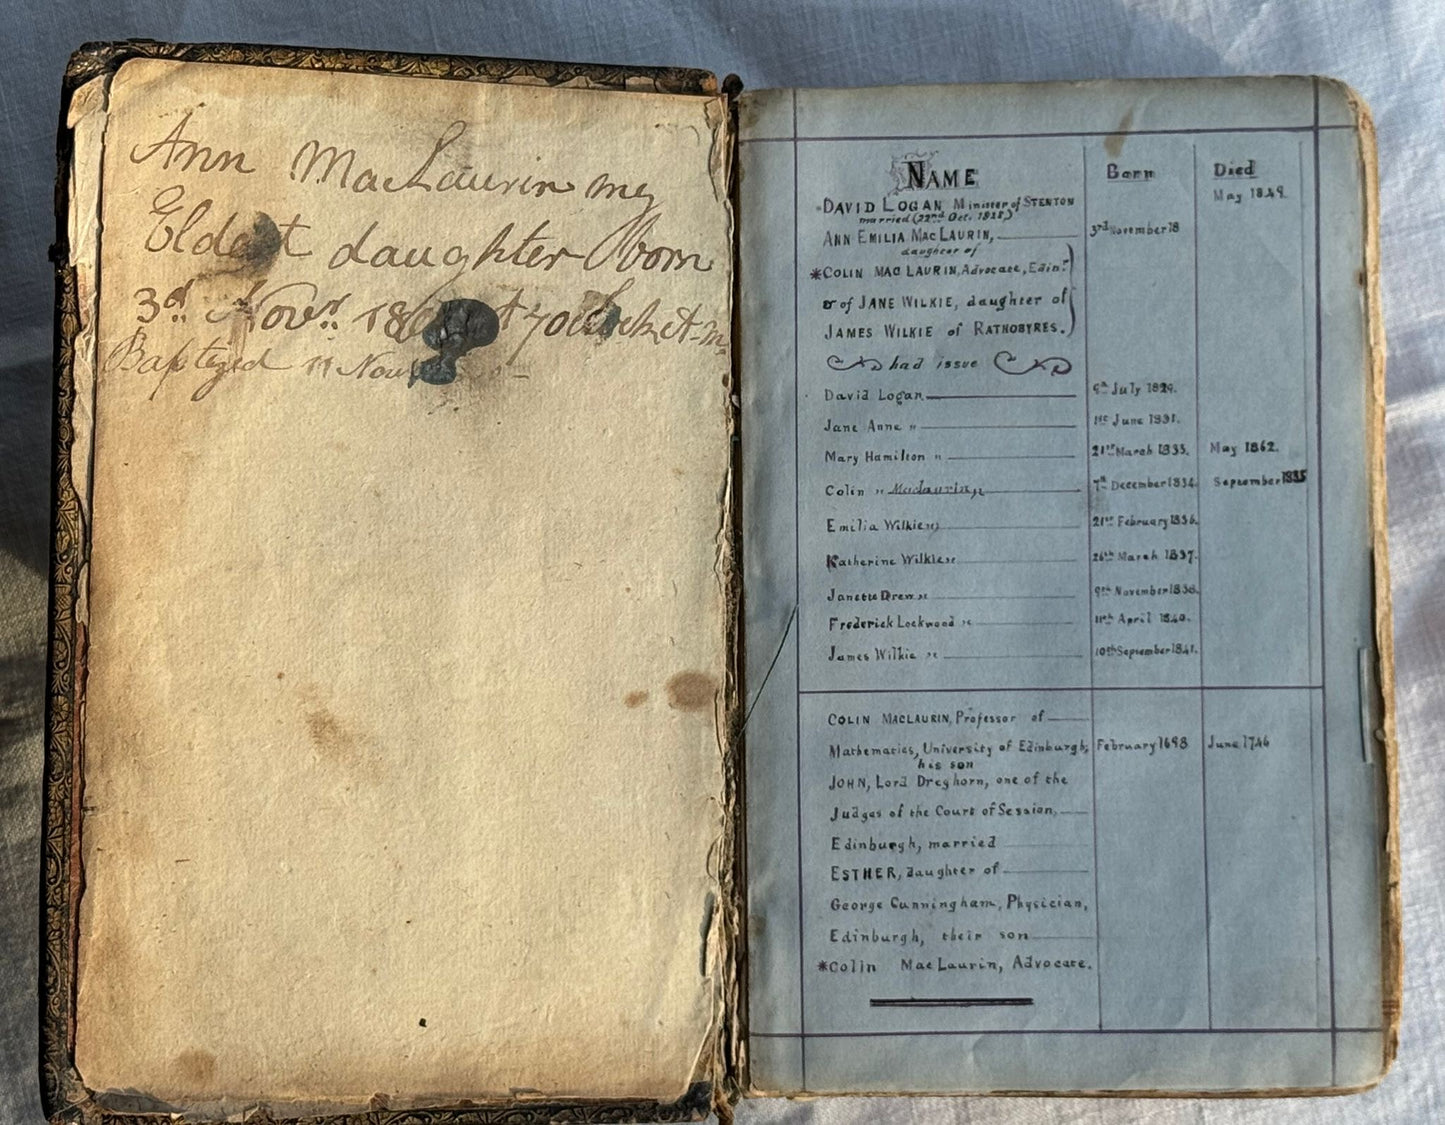 Ann MacLaurin my
Eldest daughter born
3d. Novr. 18 at 7 oClock
Baptezed 11 Nov
NAME Born Died
DAVID LOGAN Minister of STENTON May 1849.
married (22nd Oct. 1828)
ANN EMILIA MACLAURIN, 3rd November 18
daughter of
*COLIN MACLAURIN, Advocate, Edinr.
& of JANE WILKIE, daughter of
JAMES WILKIE of RATHOBYRES.
had issue
David Logan 9th July 1829.
Jane Anne " 1st June 1831.
Mary Hamilton " 21st March 1833. May 1862.
Colin " Maclaurin " 7th December 1834. September 1835
Emilia Wilkie " 21st February 1836.
Katherine Wilkie " 26th March 1837.
Janette Drew " 9th November 1838.
Frederick Lockwood " 11th April 1840.
James Wilkie " 10th September 1841.
COLIN MACLAURIN, Professor of
Mathematics, University of Edinburgh; February 1698 June 1746
his son
JOHN, Lord Dreghorn, one of the
Judges of the Court of Session,
Edinburgh, married
ESTHER, daughter of
George Cunningham, Physician,
Edinburgh, their son
*Colin MacLaurin, Advocate.